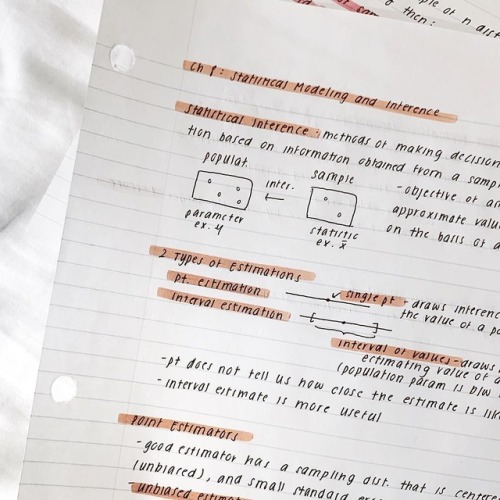 ple of n dist
for sam
g then:
Ch 8: Statistical Modeling and Inference
Statistical Inference: methods of making decision
tion based on information obtained from a sampl
populat.
inter.
sample
- objective of
approximate valu
on the basis of a
parameter
ex.
statistic
ex. x̄
2 Types of Estimations
pt. estimation
single pt - draws inferenc
the value of a po
interval estimation
interval of values - draws
estimating value of a
(population param is b/w
- pt does not tell us how close the estimate is like
- interval estimate is more useful
Point Estimators
- good estimator has a sampling dist. that is centere
(unbiased), and small standard
- unbiased estim